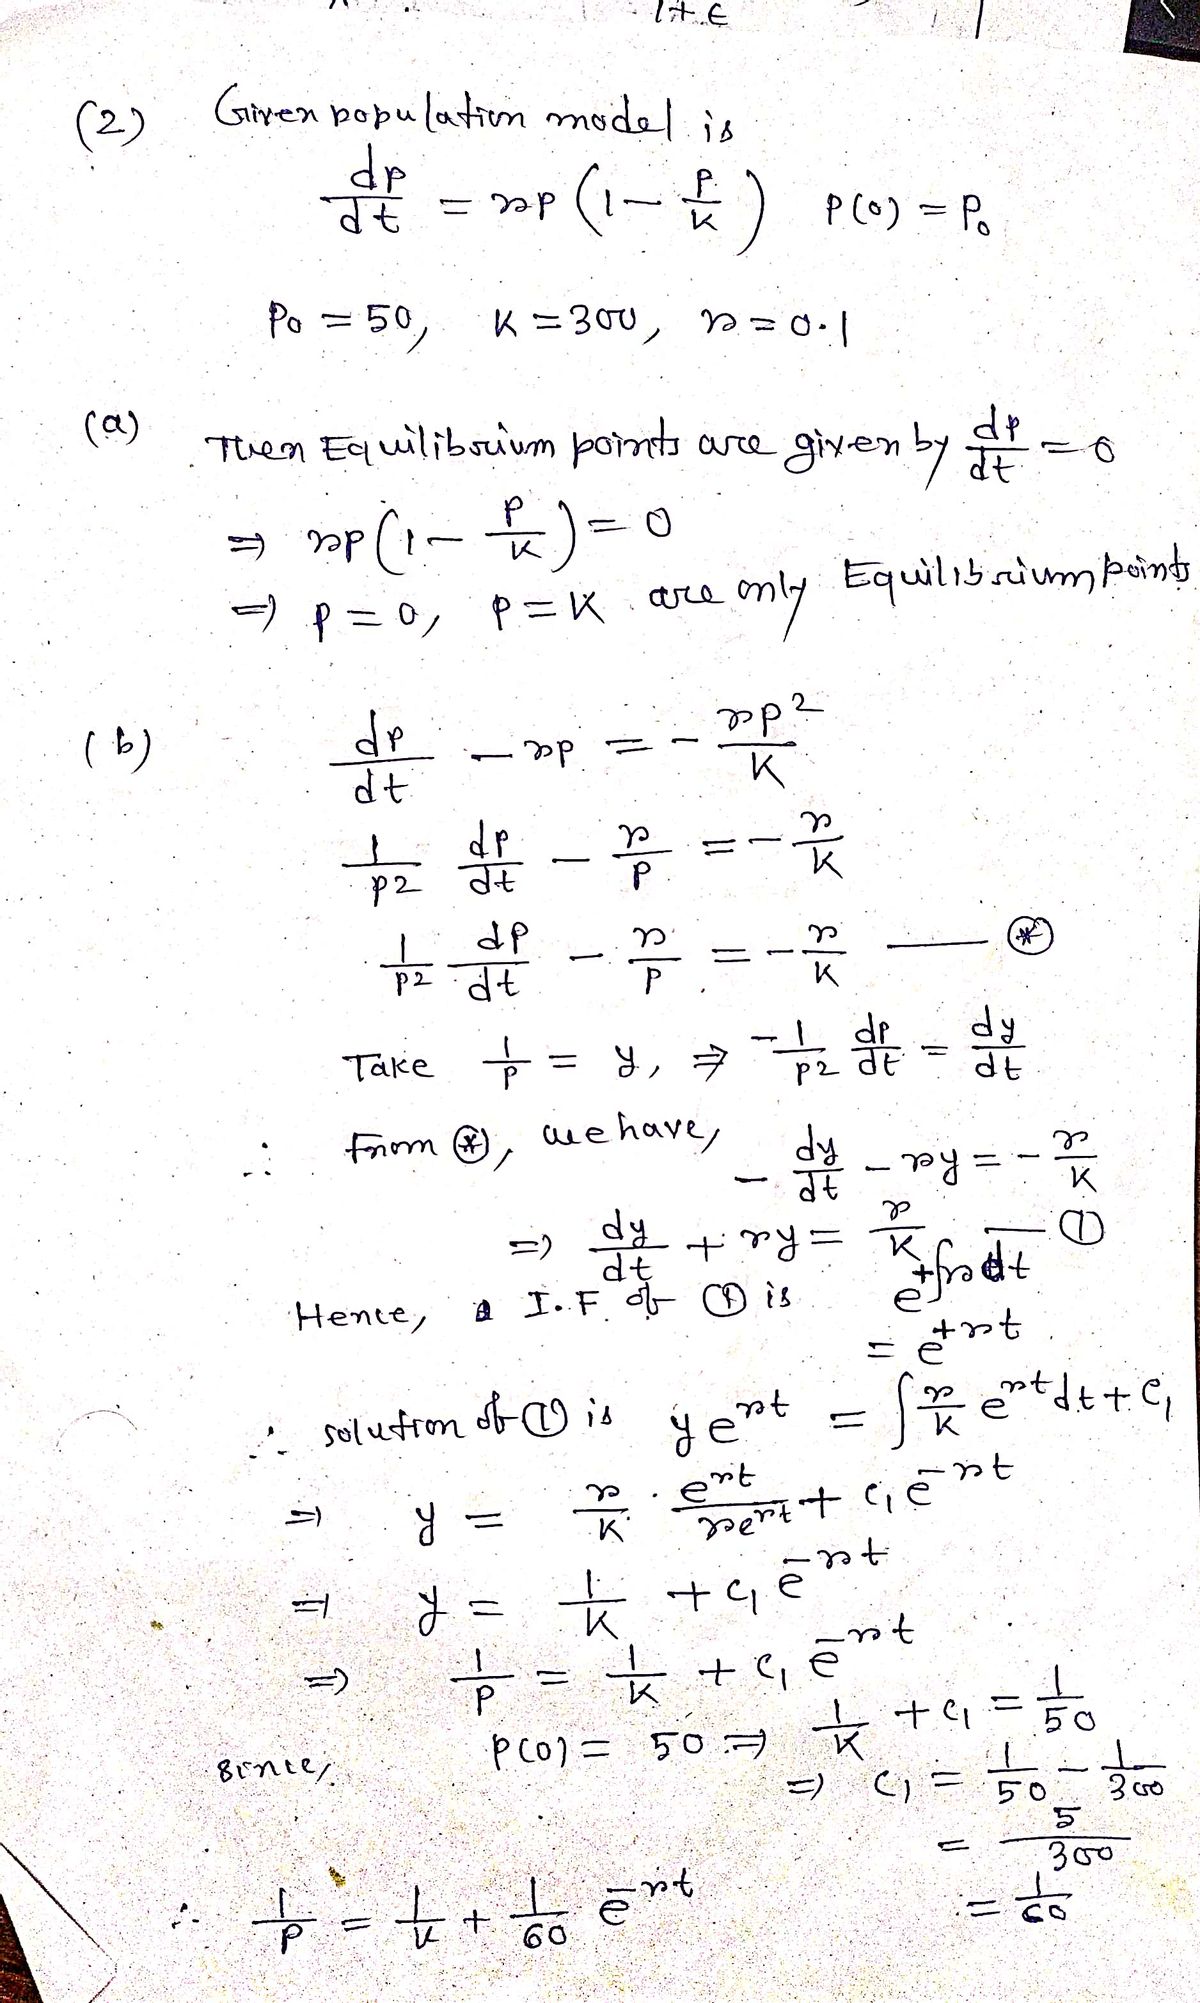 1+ε
(2) Given population model is
dp/dt = rp (1 - p/K) P(0) = P₀
P₀ = 50, K = 300, r = 0.1
(a) Then Equilibrium points are given by dp/dt = 0
⇒ rp(1 - p/K) = 0
⇒ p = 0, p = K are only Equilibrium points
(b) dp/dt - rp = - rp²/K
1/p² dp/dt - r/p = - r/K
1/p² dp/dt - r/p = - r/K —— ⊛
Take 1/p = y, ⇒ - 1/p² dp/dt = dy/dt
∴ from ⊛, we have, - dy/dt - ry = - r/K
⇒ dy/dt + ry = r/K — ①
Hence, I.F. of ① is e^{+∫r dt}
= e^{+rt}
∴ solution of ① is y e^{rt} = ∫ r/K e^{rt} dt + C₁
⇒ y = r/K · e^{rt}/re^{rt} + C₁ e^{-rt}
⇒ y = 1/K + C₁ e^{-rt}
⇒ 1/P = 1/K + C₁ e^{-rt}
Since, P(0) = 50 ⇒ 1/K + C₁ = 1/50
⇒ C₁ = 1/50 - 1/300
= 5/300
= 1/60
∴ 1/P = 1/K + 1/60 e^{-rt}